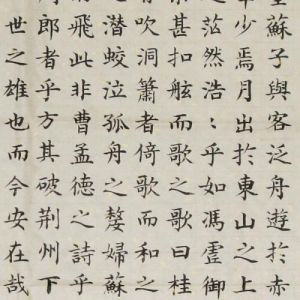 蘇子與客泛舟遊於赤
章少焉月出於東山之上
之茫然浩〻乎如馮虛御
甚扣舷而歌之歌曰桂
有吹洞簫者倚歌而和之
潛蛟泣孤舟之嫠婦蘇
飛此非曹孟德之詩乎
郎者乎方其破荊州下
世之雄也而今安在哉